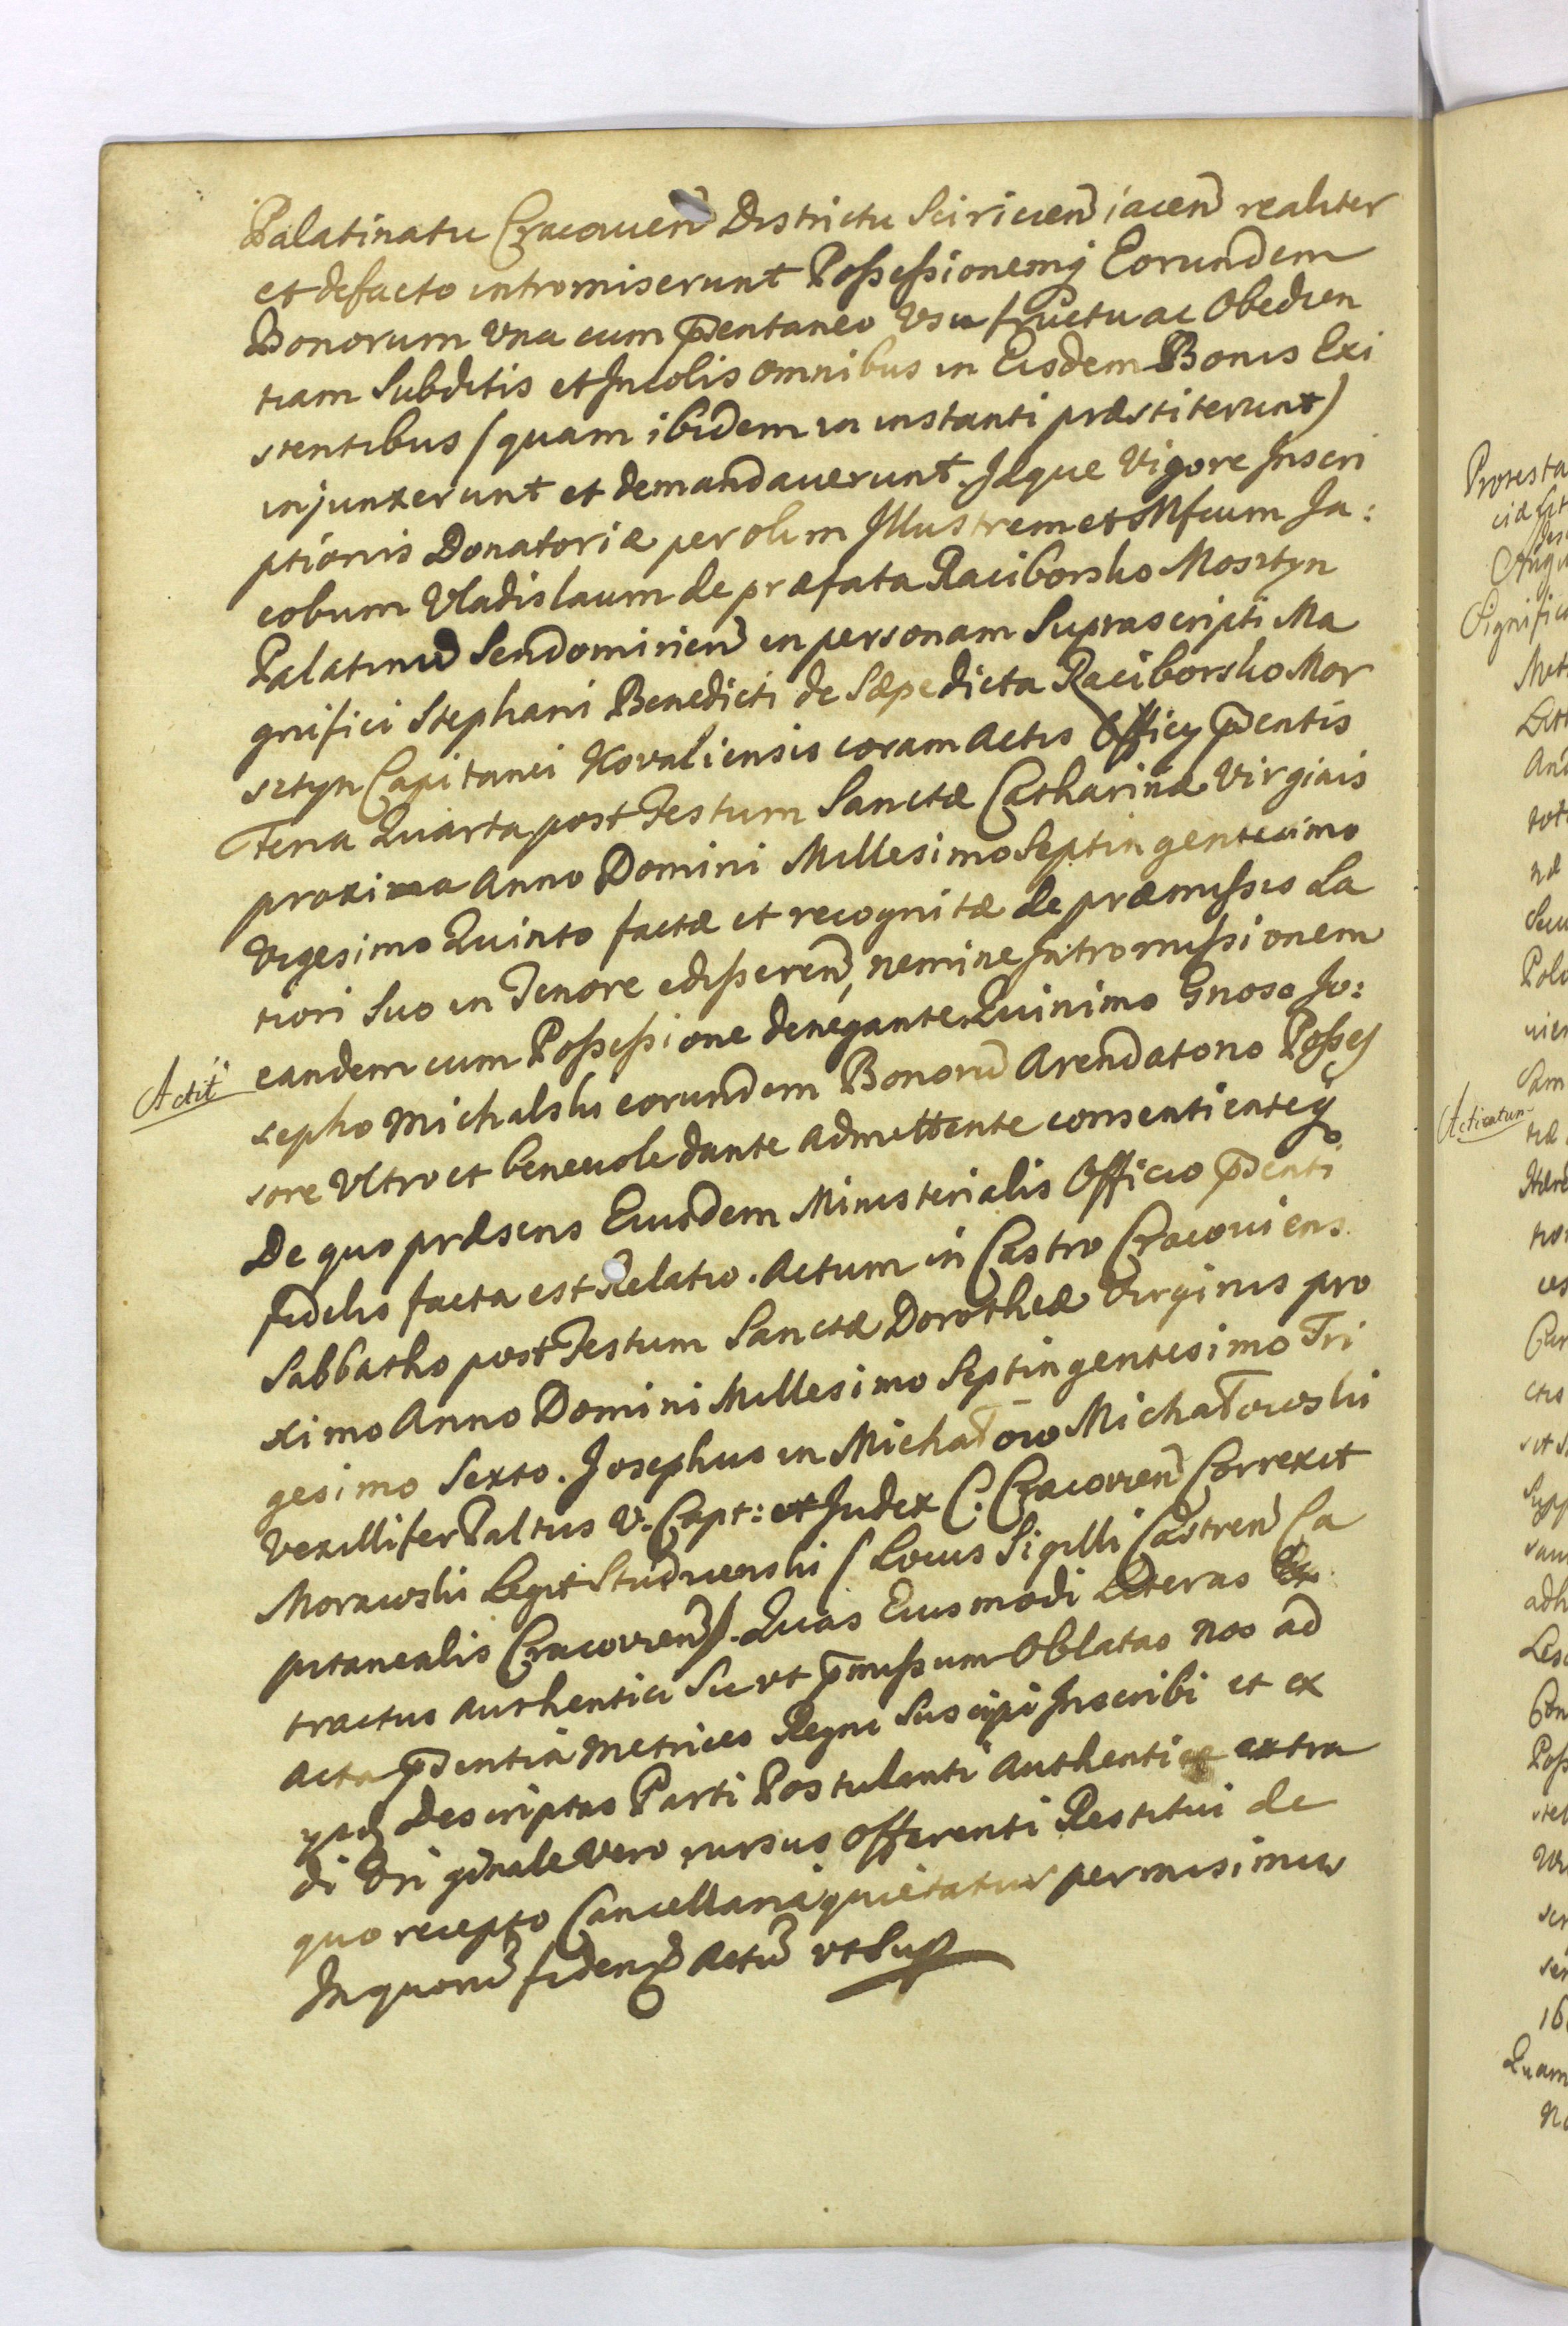 Palatinatu Cracovien Districtu Sciricien iacen realiter
et defacto intromiserunt Possessionemq Eorundem
Bonorum Vna cum pntaneo Vsu fructu ac Obedien
tiam Subditis et Incolis omnibus in Eisdem Bonis Exi
stentibus (quam ibidem in instanti præstiterunt)
injunxerunt et demandauerunt. Idque Vigore Inscri
ptionis Donatoriæ per olim Illustrem et Mfcum Ja:
cobum Vladislaum de præfata Raciborsko Morsztyn
Palatinum Sendomirien in personam Suprascripti Ma
gnifici Stephani Benedicti de Sæpedicta Raciborsko Mor
sztyn Capitanei Kovaliensis coram Actis Officij pntis
Feria Quarta post Festum Sanctæ Catharinæ Virginis
proxima Anno Domini Millesimo Septingentesimo
Vigesimo Quinto factæ et recognitæ de præmissis La
tiori Suo in Tenore edisseren, nemine Intromissionem
Actit
eandem cum Possessione denegante Quinimo Gnoso Jo:
sepho Michalski eorundem Bonorum Arendatorio Posses
sore Vltro et beneuole dante admittente consentienteq
De quo præsens Eiusdem Ministerialis Officio pnti
fidelis facta est Relatio. Actum in Castro Cracouiens
Sabbatho post Festum Sanctæ Dorotheæ Virginis pro
ximo Anno Domini Millesimo Septingentesimo Tri
gesimo Sexto. Josephus in Michałow Michałowski
Vexillifer Paltus V. Capt: et Judex C: Cracovien Correxit
Morawski Legit Studnienski (Locus Sigilli Castren Ca
pitanealis Cracovien). Quas Eiusmodi Literas Ex
tractus authentici Sic vt pmissum Oblatas nos ad
Acta pntia Metrices Regni Suscipi Inscribi et ex
Descriptas Parti Postulanti Authentice extra
di Originale Vero rursus Offerenti Restitui de
quo recepto Cancellaria quietatur permisimus
In quorum fidem Actum vt Sup